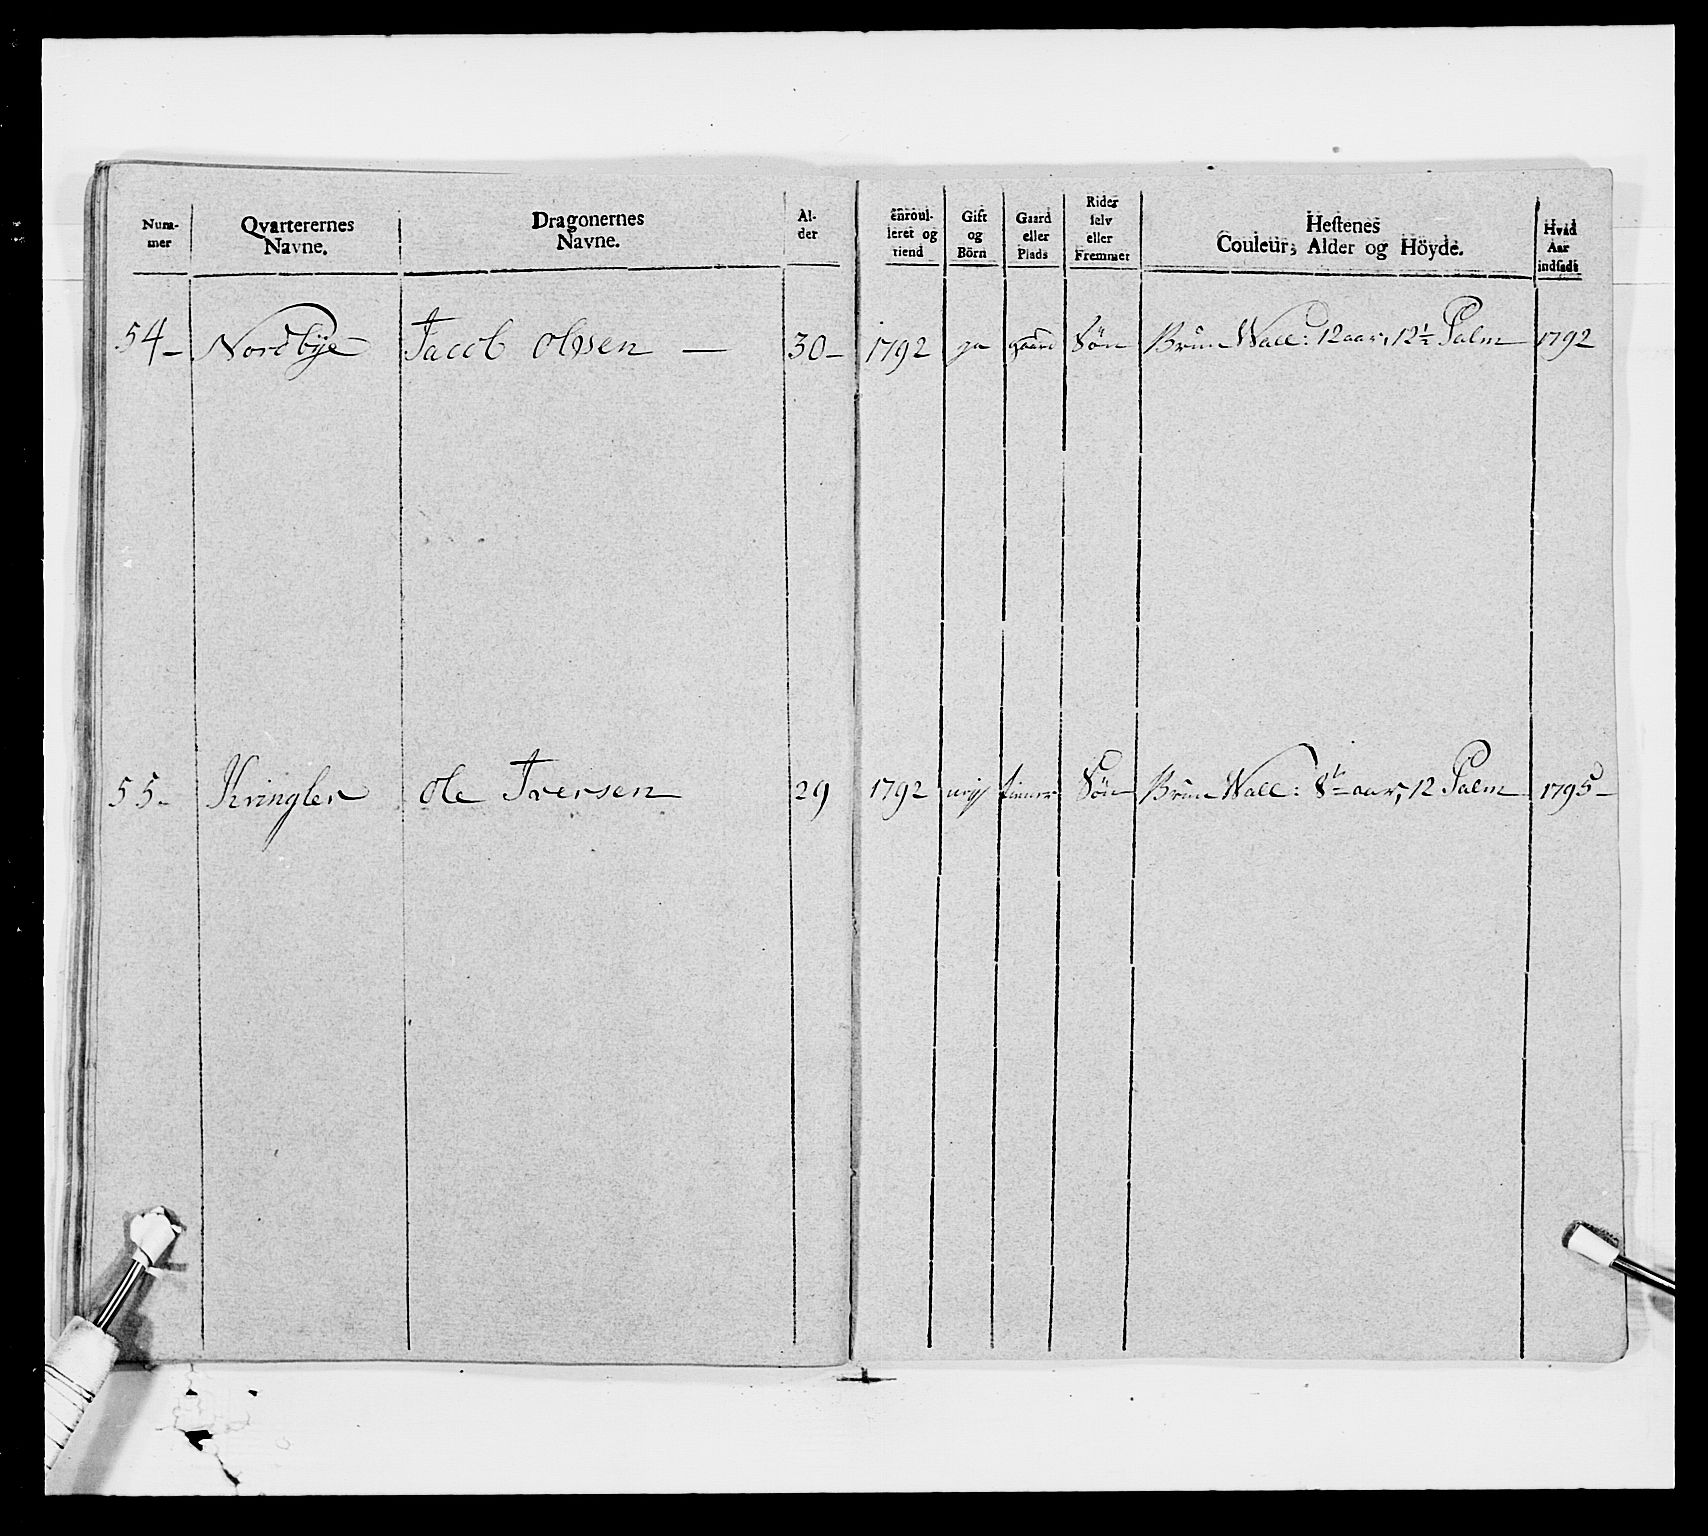 Num-
mer
Qvarterernes
Navne.
Dragonernes
Navne.
Al-
der
enroul-
leret og
tiend
Gift
og
Börn
Gaard
eller
Plads
Rider
selv
eller
Fremmet
Hestenes
Couleur, Alder og Höyde.
Hvad
Aar
indsadt
54 - Nordbye Jacob Olssen — 30 - 1792 ja gaard Søn Brun Wall: 12 aar, 12½ Palm 1792
55 - Kringler Ole Iversen 29 1792 Søn Brun Wall: aar, 12 Palm 1795 -